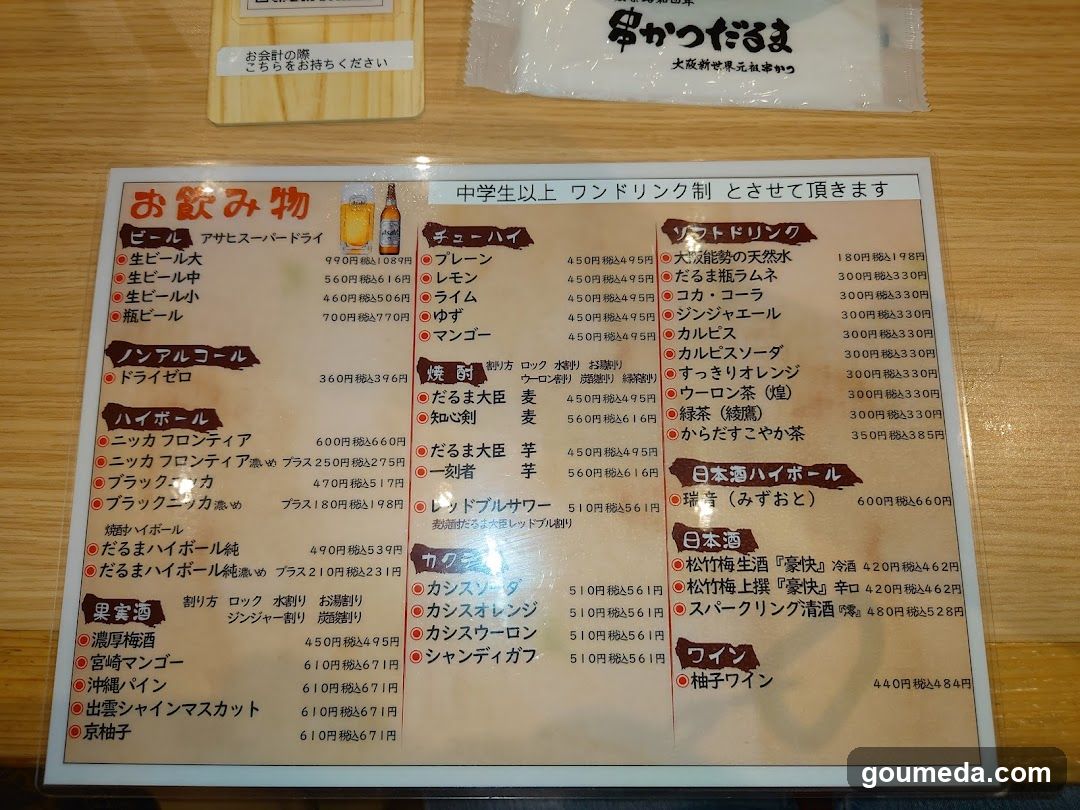 お会計の際
こちらをお持ちください
串かつだるま
大阪新世界元祖串かつ
お飲み物
中学生以上 ワンドリンク制 とさせて頂きます
ビール アサヒスーパードライ
生ビール大 990円税込1089円
生ビール中 560円税込616円
生ビール小 460円税込506円
瓶ビール 700円税込770円
ノンアルコール
ドライゼロ 360円税込396円
ハイボール
ニッカ フロンティア 600円税込660円
ニッカ フロンティア濃いめ プラス250円税込275円
ブラックニッカ 470円税込517円
ブラックニッカ濃いめ プラス180円税込198円
焼酎ハイボール
だるまハイボール純 490円税込539円
だるまハイボール純濃いめ プラス210円税込231円
果実酒 割り方 ロック 水割り お湯割り
ジンジャー割り 炭酸割り
濃厚梅酒 450円税込495円
宮崎マンゴー 610円税込671円
沖縄パイン 610円税込671円
出雲シャインマスカット 610円税込671円
京柚子 610円税込671円
チューハイ
プレーン 450円税込495円
レモン 450円税込495円
ライム 450円税込495円
ゆず 450円税込495円
マンゴー 450円税込495円
焼酎 割り方 ロック 水割り お湯割り
ウーロン割り 炭酸割り 緑茶割り
だるま大臣 麦 450円税込495円
知心剣 麦 560円税込616円
だるま大臣 芋 450円税込495円
一刻者 芋 560円税込616円
レッドブルサワー 510円税込561円
麦焼酎だるま大臣レッドブル割り
カクテル
カシスソーダ 510円税込561円
カシスオレンジ 510円税込561円
カシスウーロン 510円税込561円
シャンディガフ 510円税込561円
ソフトドリンク
大阪能勢の天然水 180円税込198円
だるま瓶ラムネ 300円税込330円
コカ・コーラ 300円税込330円
ジンジャエール 300円税込330円
カルピス 300円税込330円
カルピスソーダ 300円税込330円
すっきりオレンジ 300円税込330円
ウーロン茶（煌） 300円税込330円
緑茶（綾鷹） 300円税込330円
からだすこやか茶 350円税込385円
日本酒ハイボール
瑞音（みずおと） 600円税込660円
日本酒
松竹梅生酒『豪快』冷酒 420円税込462円
松竹梅上撰『豪快』辛口 420円税込462円
スパークリング清酒『澪』 480円税込528円
ワイン
柚子ワイン 440円税込484円
goumeda.com